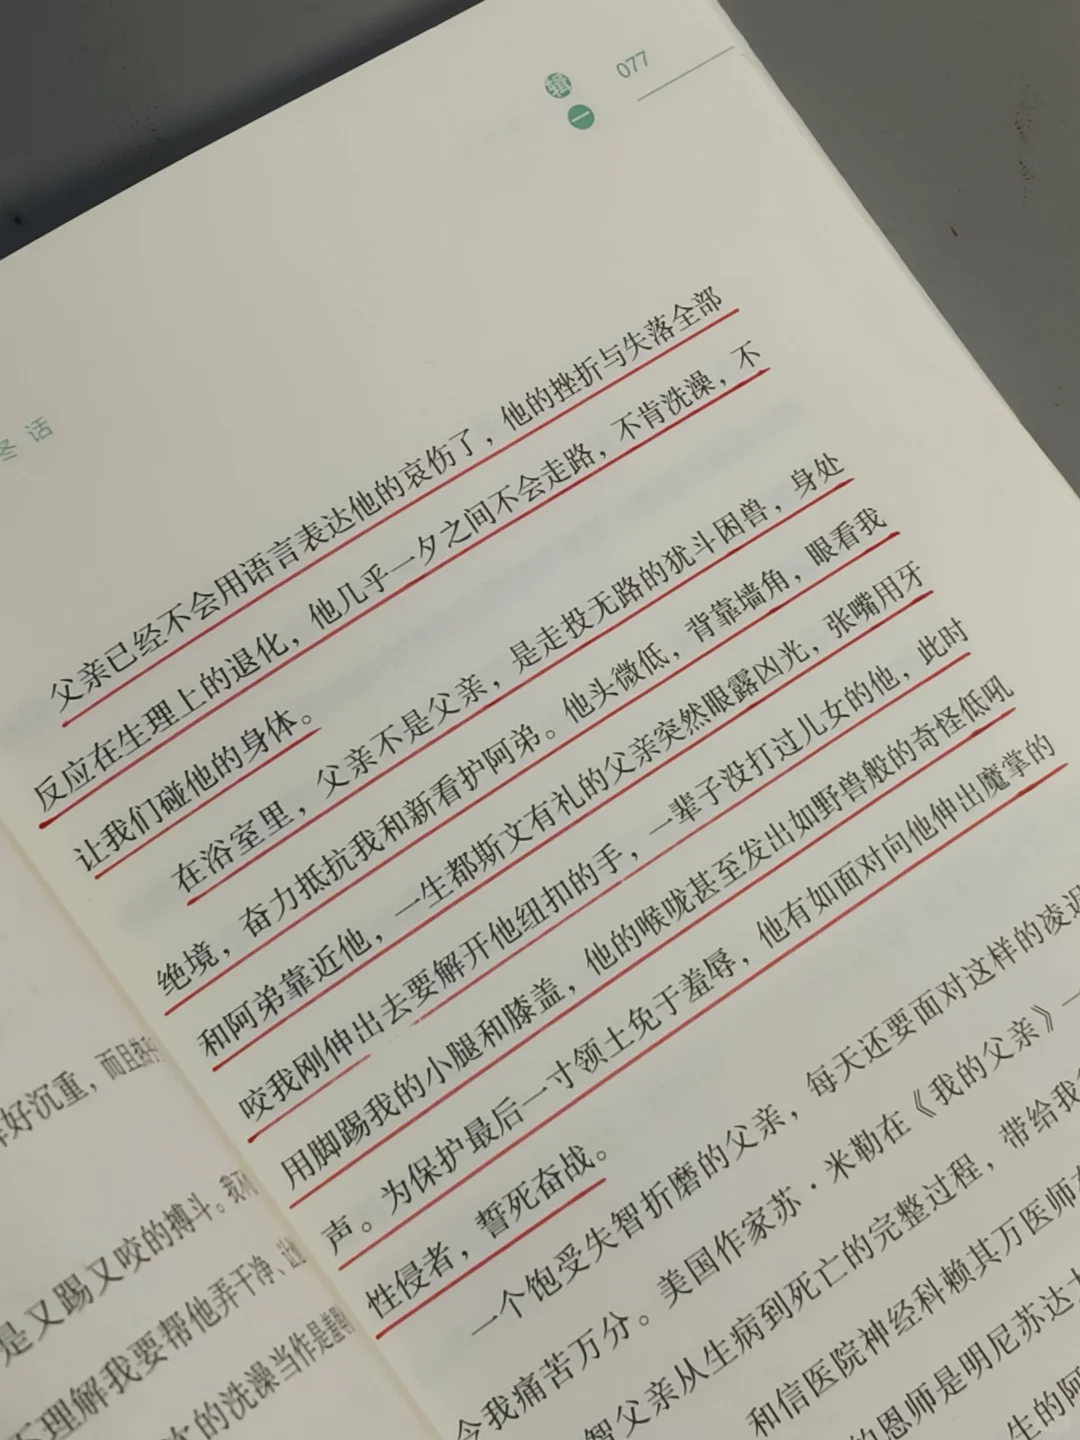 辑一
077
冬话
父亲已经不会用语言表达他的哀伤了，他的挫折与失落全部
反应在生理上的退化，他几乎一夕之间不会走路，不肯洗澡，不
让我们碰他的身体。
在浴室里，父亲不是父亲，是走投无路的犹斗困兽，身处
绝境，奋力抵抗我和新看护阿弟。他头微低，背靠墙角，眼看我
和阿弟靠近他，一生都斯文有礼的父亲突然眼露凶光，张嘴用牙
咬我刚伸出去要解开他纽扣的手，一辈子没打过儿女的他，此时
用脚踢我的小腿和膝盖，他的喉咙甚至发出如野兽般的奇怪低吼
声。为保护最后一寸领土免于羞辱，他有如面对向他伸出魔掌的
性侵者，誓死奋战。
一个饱受失智折磨的父亲，每天还要面对这样的凌迟
令我痛苦万分。美国作家苏·米勒在《我的父亲》一
智父亲从生病到死亡的完整过程，带给我
和信医院神经科赖其万医师
的恩师是明尼苏达
生的阿
好沉重，而且
是又踢又咬的搏斗。我
不理解我要帮他弄干净、让
次的洗澡当作是羞辱